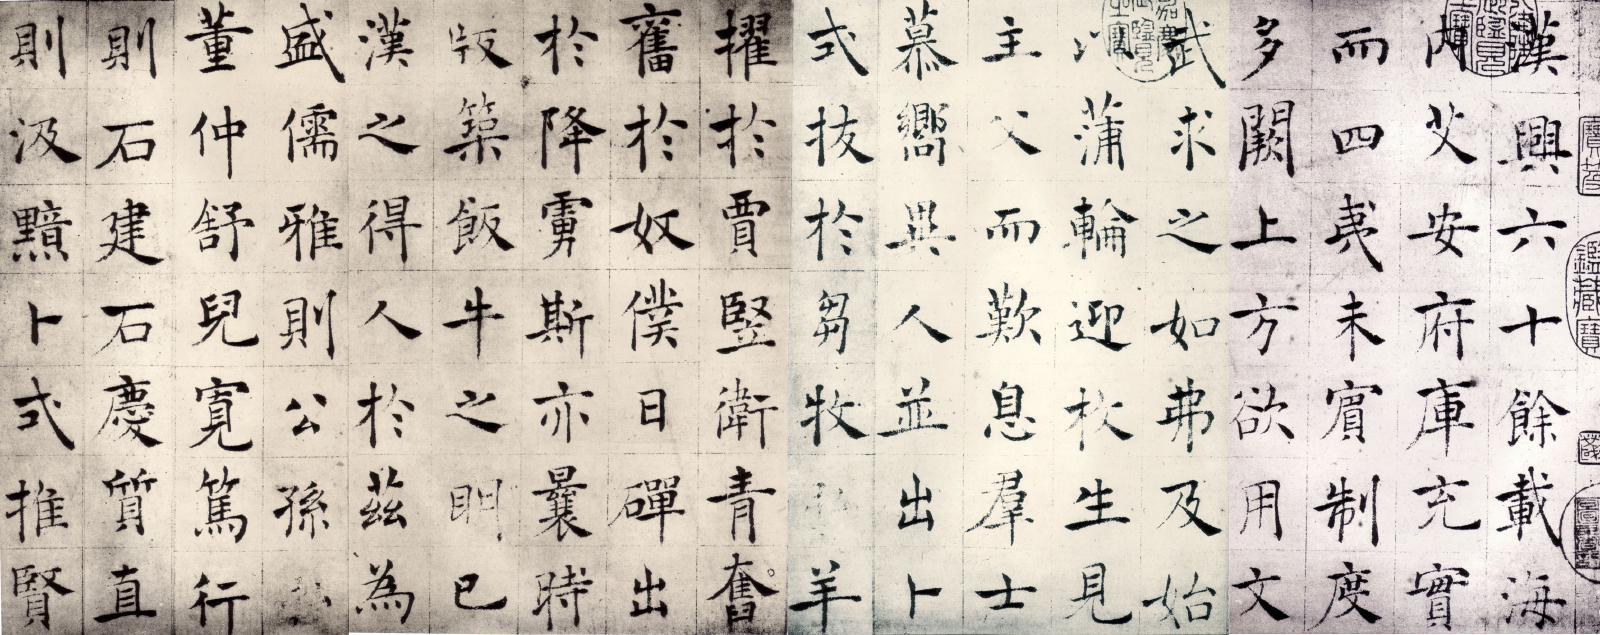 漢興六十餘載海
内艾安府庫充實
而四夷未賓制度
多闕上方欲用文
武求之如弗及始
以蒲輪迎枚生見
主父而歎息羣士
慕嚮異人並出卜
式拔於芻牧羊
擢於賈豎衛青奮
奮於奴僕日磾出
於降虜斯亦曩時
版築飯牛之眀已
漢之得人於茲為
盛儒雅則公孫
董仲舒兒寬篤行
則石建石慶質直
則汲黯卜式推賢